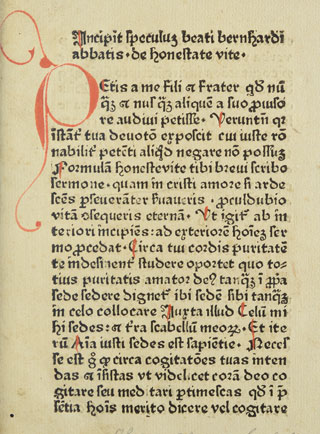 Incipit speculuʒ beati bernhardi
abbatis · de honestate vite ·
Petis a me fili ⁊ frater qđ nū
qʒ̄ ⁊ nusqʒ̄ aliquē a suo ꝓuiso
re audiui petisse · Veruntn̄ qꝛ
īstāt̉ tua deuotō exposcit cui iuste ro
nabilit̉ petēti aliqd negare nō possuʒ
Formulā honeste vite tibi breui scribo
sermone · quam in cristi amore si arde
scēs ꝑseuerāt̉ ẜuaueris · ꝓculdubio
vitā ꝯsequeris eternā · Vt igit̉ ab in
teriori incipiens : ad exteriorē hoīeʒ ser
mo ꝓcedat · Circa tui cordis puritatē
te indesinēt̉ studere oportet quo to-
tius puritatis amator de⁹ tanqʒ̄ ī ꝓp̄a
sede sedere dignet̉ ibi sedē sibi tanqʒ̄
in celo collocare Iuxta illud Celū mi
hi sedes : ⁊ t̉ra scabellū meoꝝ · Et ite
rū Aīa iusti sedes est sapiētie · Necef
se est g̊ ꝙ circa cogitatōes tuas inten
das ⁊ īsistas vt videlicet corā deo co
gitare seu meditari ꝑtimescas qđ ī p̄
sētia hoīs merito dicere vel cogitare